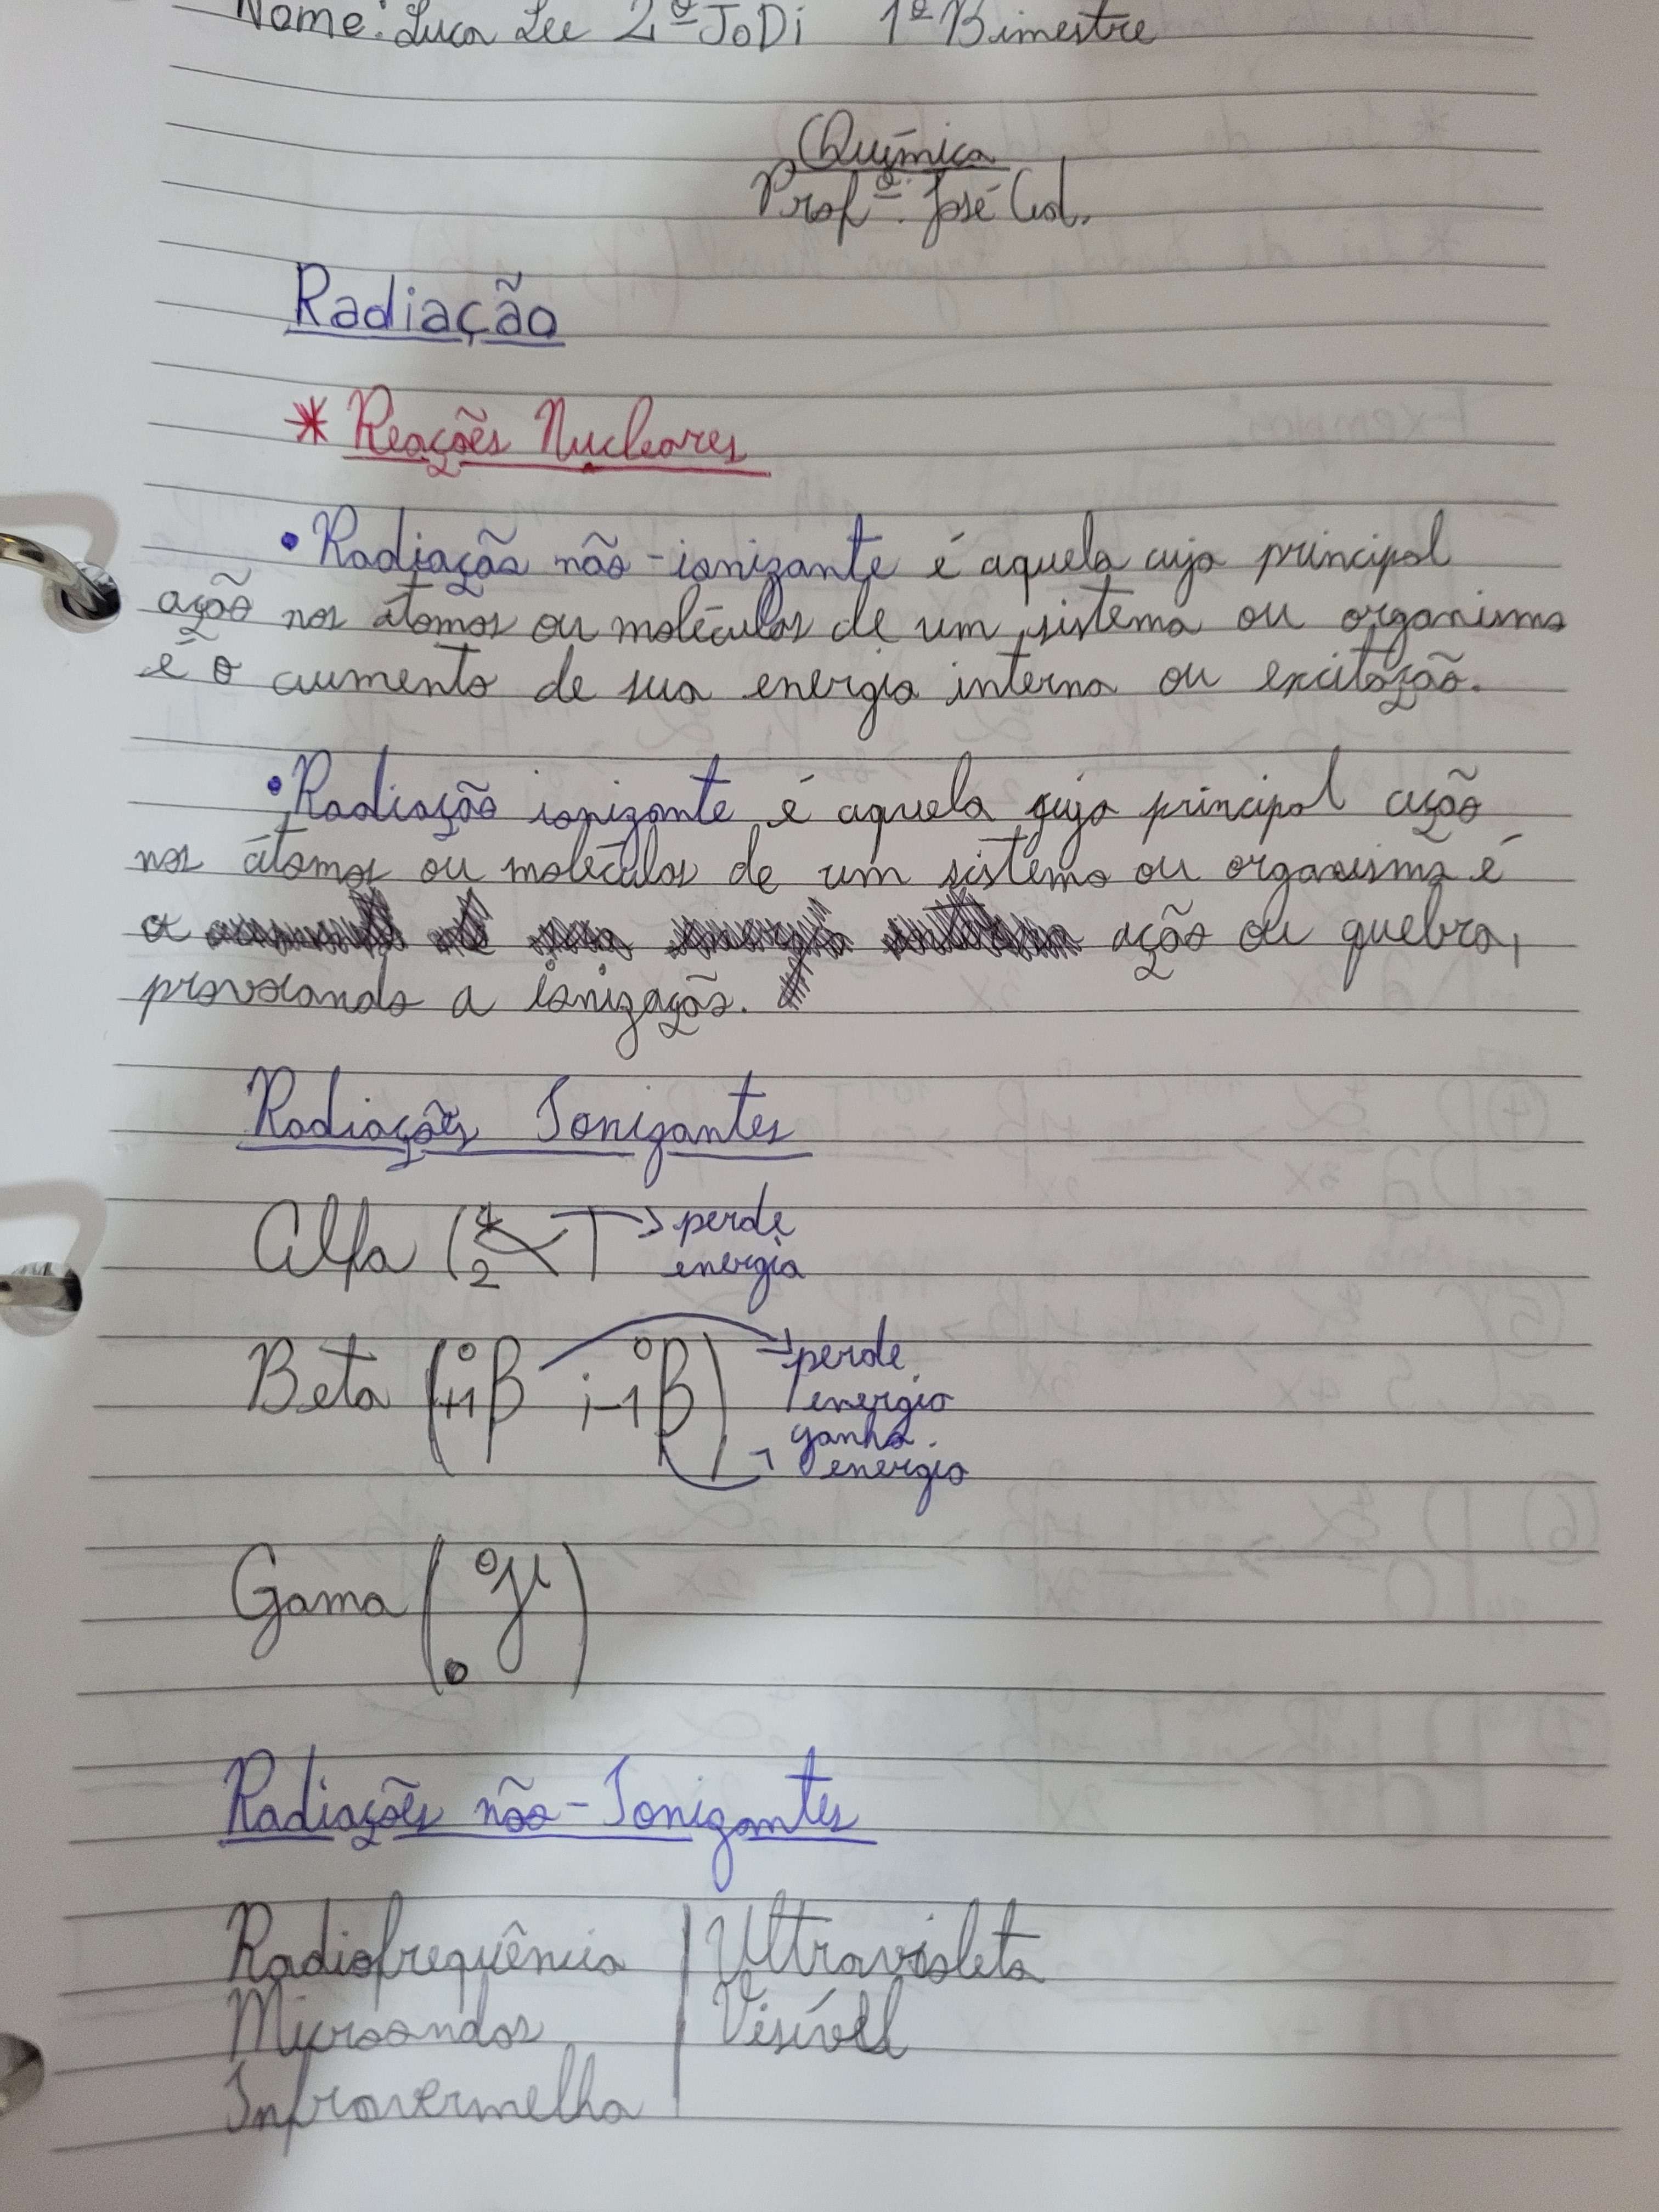 Nome: Luca Lee 2º JoDi 1º Bimestre
Química
Profº. José Col.
Radiação
* Reações Nucleares
• Radiação não-ionizante é aquela cuja principal
ação nos átomos ou moléculas de um sistema ou organismo
é o aumento de sua energia interna ou excitação.
• Radiação ionizante é aquela cuja principal ação
nos átomos ou moléculas de um sistema ou organismo é
a ação ou quebra,
provocando a ionização.
Radiações Ionizantes
Alfa (⁴₂α) → perde
energia
Beta (⁰₊₁β ; ⁰₋₁β) → perde
energia
ganha
energia
Gama (⁰₀γ)
Radiações não-Ionizantes
Radiofrequência | Ultravioleta
Microondas | Visível
Infravermelha